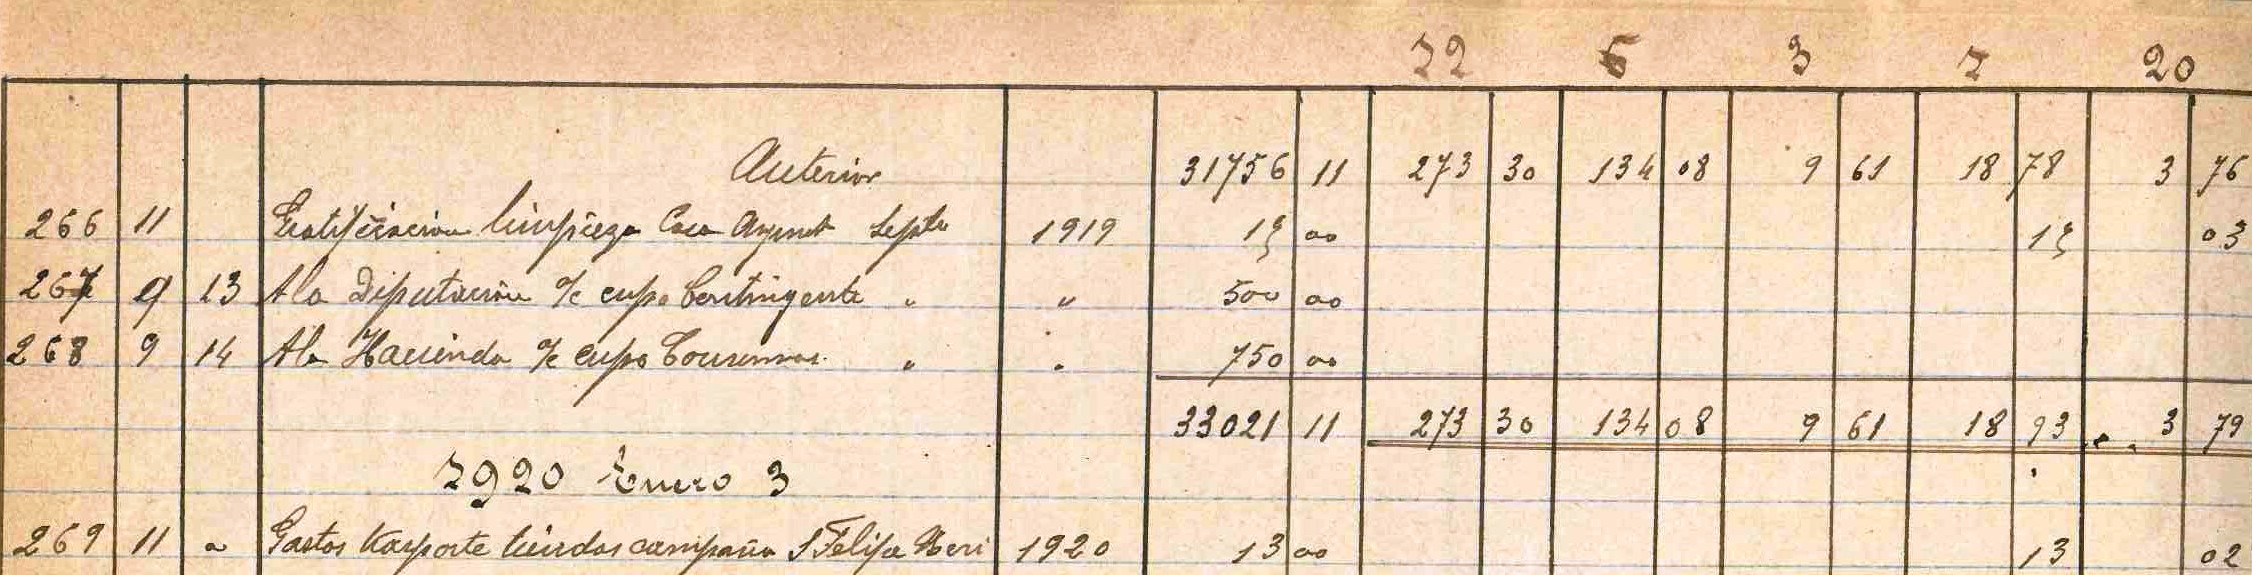 12 6 3 1 20
Anterior 31756 11 273 30 134 08 9 61 18 78 3 76
266 11 Gratificacion limpieza Casa Ayunt Septe 1919 15 00 15 03
267 9 13 A la Diputación % cupo Contingente " " 500 00
268 9 14 A la Hacienda % cupo Consumos " " 750 00
33021 11 273 30 134 08 9 61 18 93 3 79
1920 Enero 3
269 11 " Gastos trasporte tiendas campaña S Felipe Neri 1920 13 00 13 02